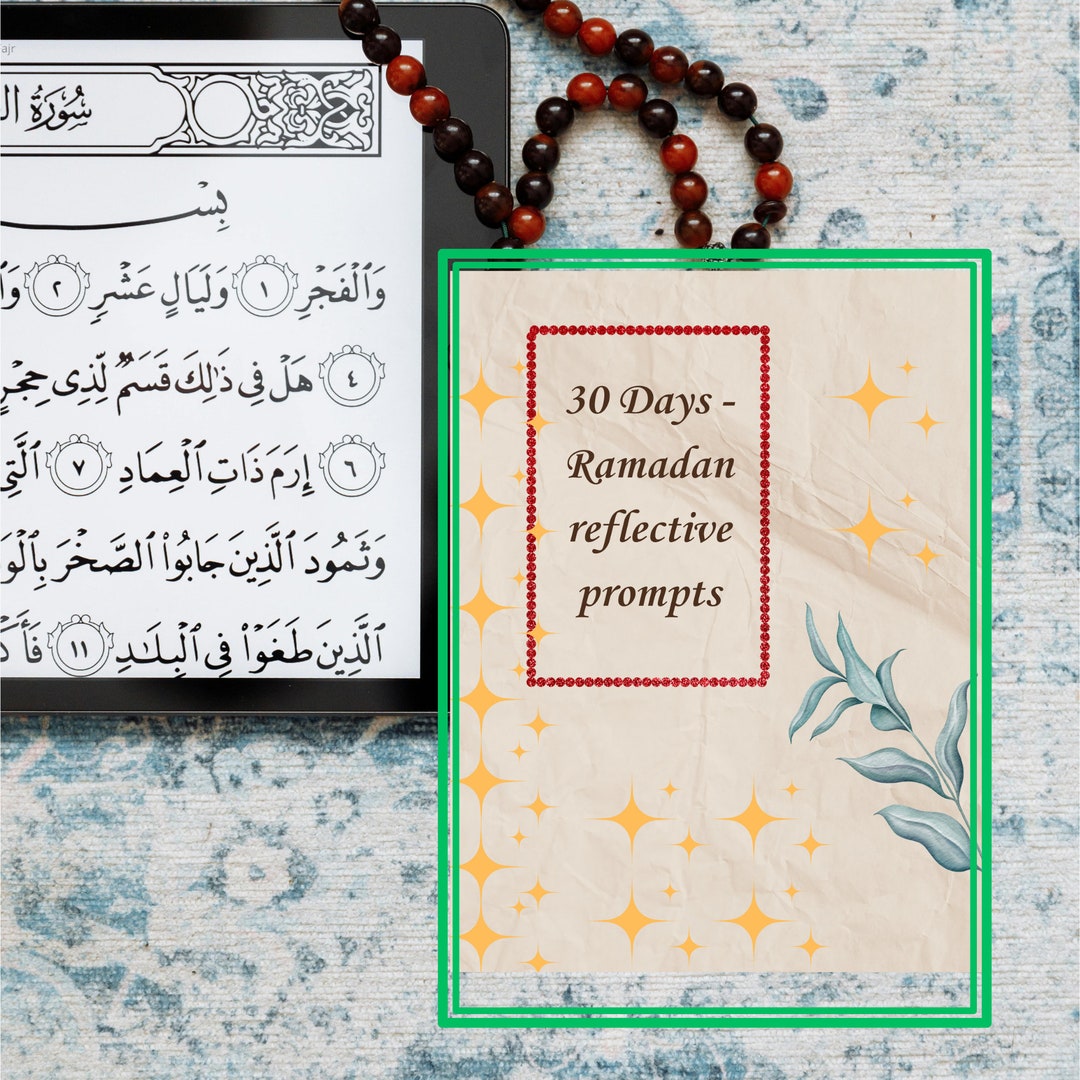 ajr
سُورَةُ
بِسْ
وَٱلْفَجْرِ ١ وَلَيَالٍ عَشْرٍ ٢
٤ هَلْ فِى ذَٰلِكَ قَسَمٌ لِّذِى حِجْرٍ
٦ إِرَمَ ذَاتِ ٱلْعِمَادِ ٧ ٱلَّتِى
وَثَمُودَ ٱلَّذِينَ جَابُوا۟ ٱلصَّخْرَ
ٱلَّذِينَ طَغَوْا۟ فِى ٱلْبِلَـٰدِ ١١
30 Days -
Ramadan
reflective
prompts